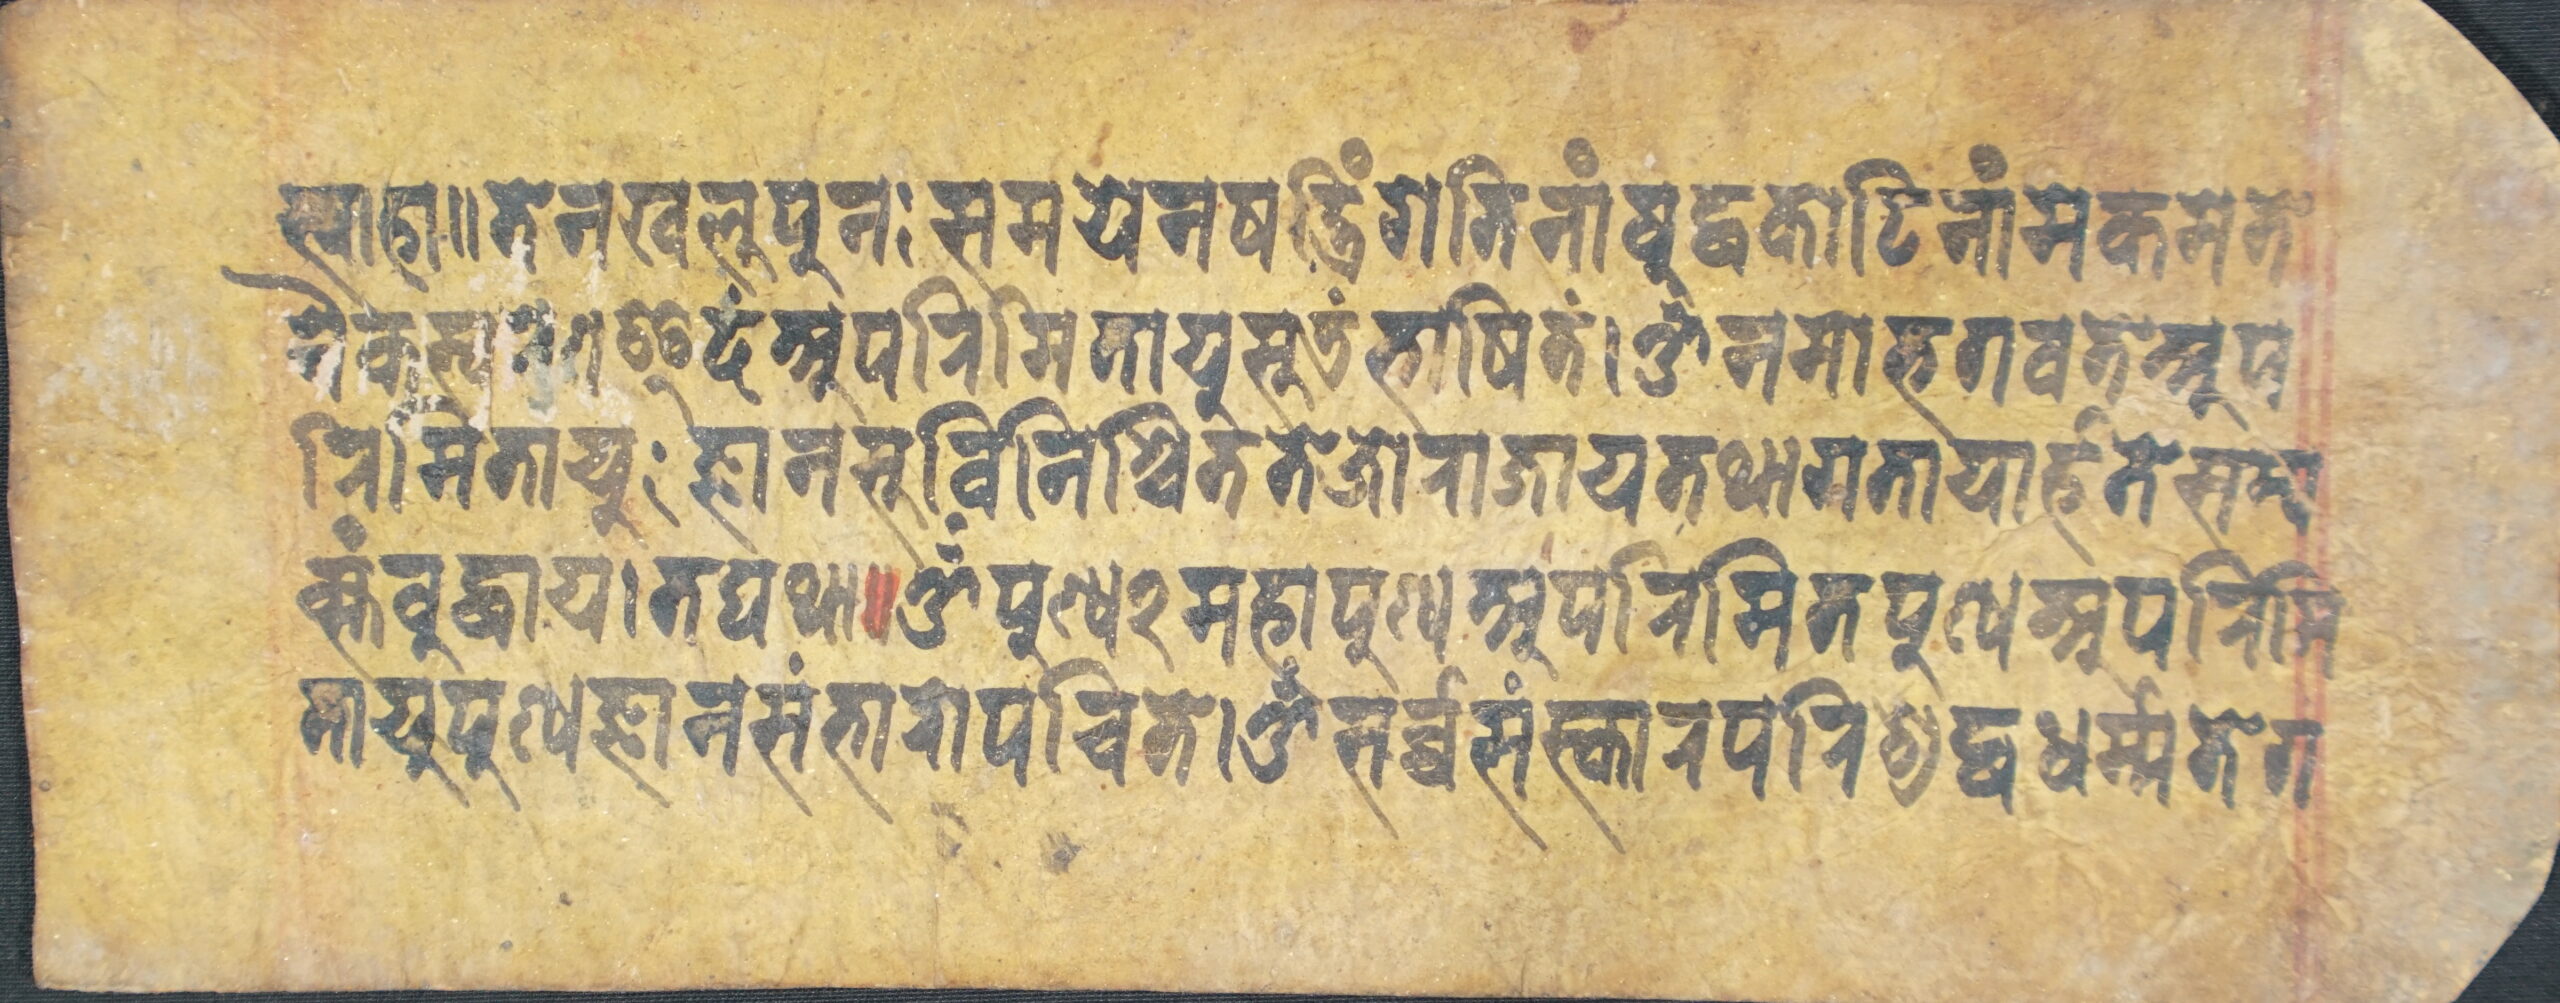 स्वाहा॥ तेन खलु पुनः समयेन षत्त्रिंशतिनां बुद्धकोटिनांमेकमते
नैकस्वरेण इदं अपरिमितायुसूत्रं भाषितं। ॐ नमो भगवते अप
रिमितायुः ज्ञानसुविनिश्चिततेजोराजाय तथागतायार्हते सम्य
क्सं बुद्धाय। तद्यथा॥ ॐ पुण्य२ महापुण्य अपरिमितपुण्य अपरिमि
तायुपुण्यज्ञानसंभारोपचिते। ॐ सर्व्वसंस्कारपरिशुद्धधर्म्मते ग